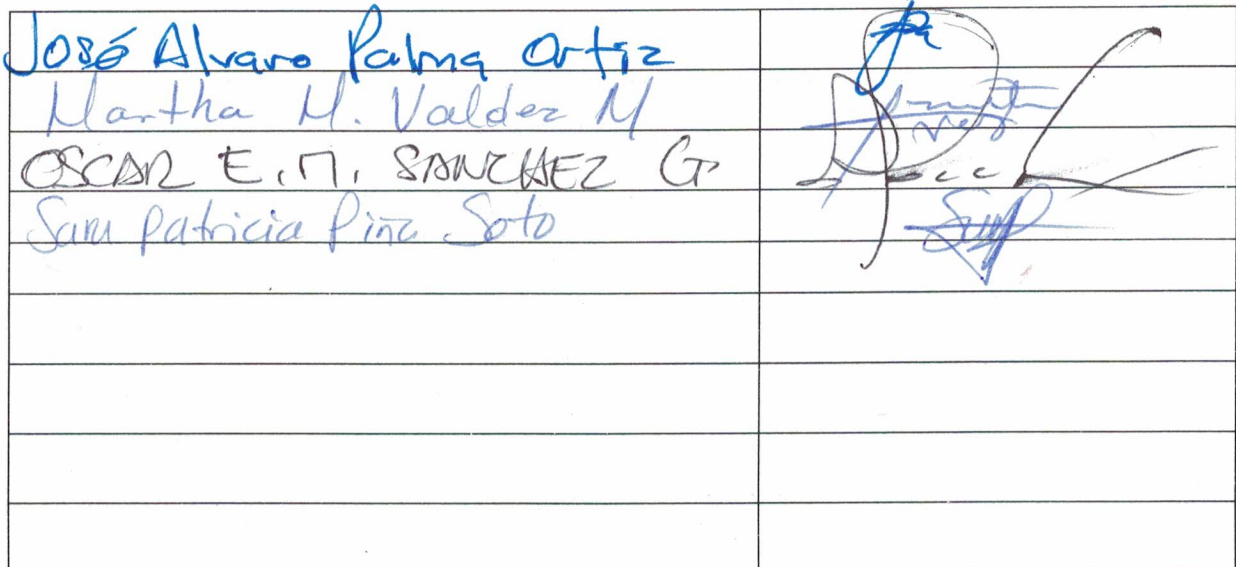 José Alvaro Palma Ortiz
Martha M. Valdez M
OSCAR E. M. SANCHEZ G.
Sara Patricia Piña Soto